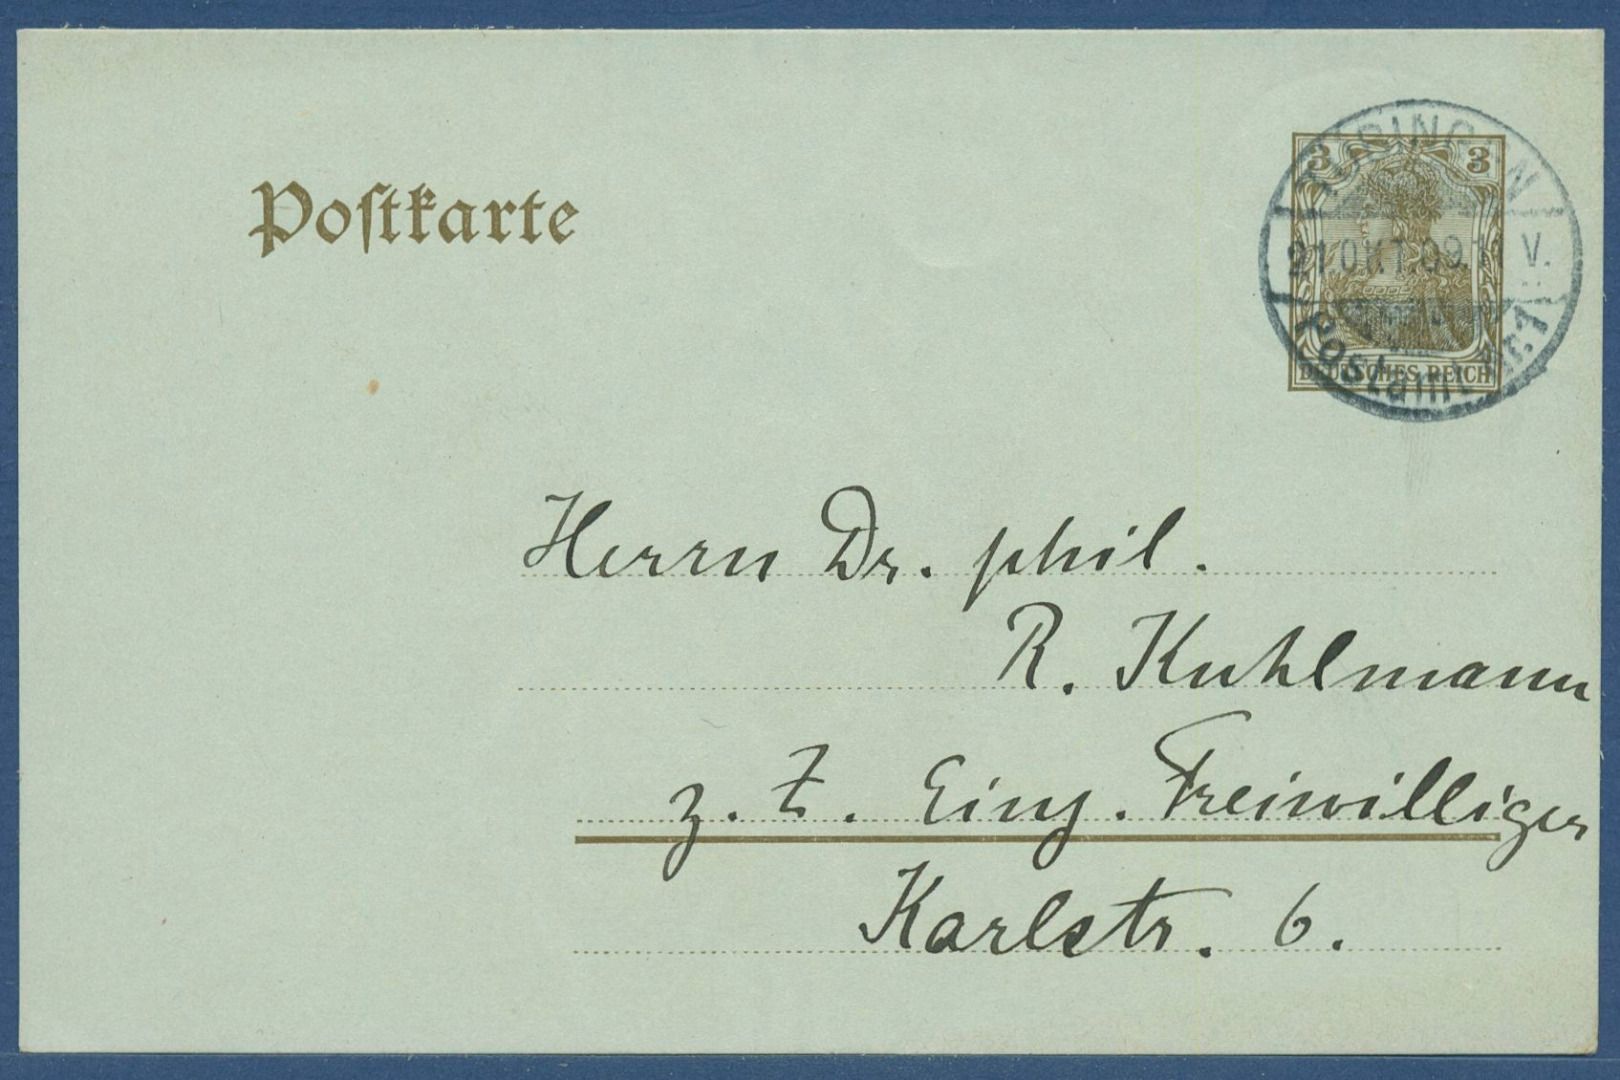 Postkarte
3 3
21.OKT.09.11 V.
Postamt Nr.1
DEUTSCHES REICH
Herrn Dr. phil.
R. Kuhlmann
z. Z. Einj. Freiwilliger
Karlstr. 6.